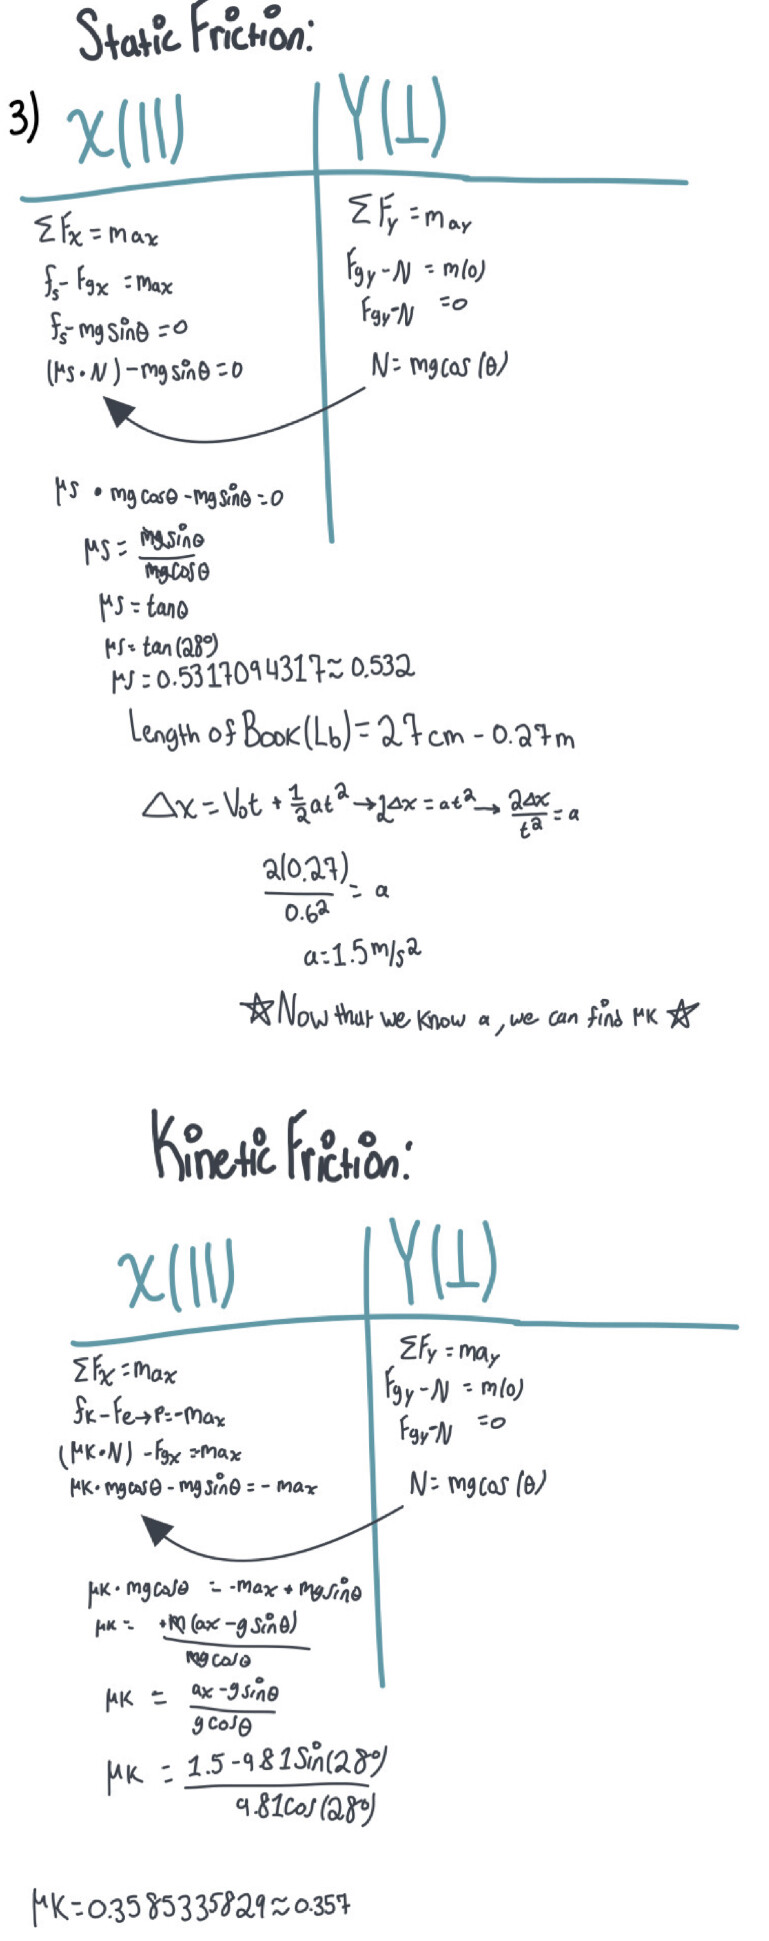 Static Friction:
3) X(||) Y(⊥)
ΣFx = max
fs - Fgx = max
fs - mg sinθ = 0
(μs • N) - mg sinθ = 0
ΣFy = may
Fgy - N = m(0)
Fgy - N = 0
N = mg cos (θ)
μs • mg cosθ - mg sinθ = 0
μs = mg sinθ / mg cosθ
μs = tanθ
μs = tan(28°)
μs = 0.5317094317 ≈ 0.532
Length of Book (Lb) = 27 cm - 0.27 m
Δx = V₀t + 1/2 at² → 2Δx = at² → 2Δx / t² = a
2(0.27) / 0.6² = a
a = 1.5 m/s²
☆ Now that we know a, we can find μK ☆
Kinetic Friction:
X(||) Y(⊥)
ΣFx = max
fK - Fe→p = -max
(μK • N) - Fgx = max
μK • mg cosθ - mg sinθ = - max
ΣFy = may
Fgy - N = m(0)
Fgy - N = 0
N = mg cos (θ)
μK • mg cosθ = -max + mg sinθ
μK = +m (ax - g sinθ) / mg cosθ
μK = ax - g sinθ / g cosθ
μK = 1.5 - 9.81 Sin(28°) / 9.81 cos(28°)
μK = 0.3585335829 ≈ 0.357